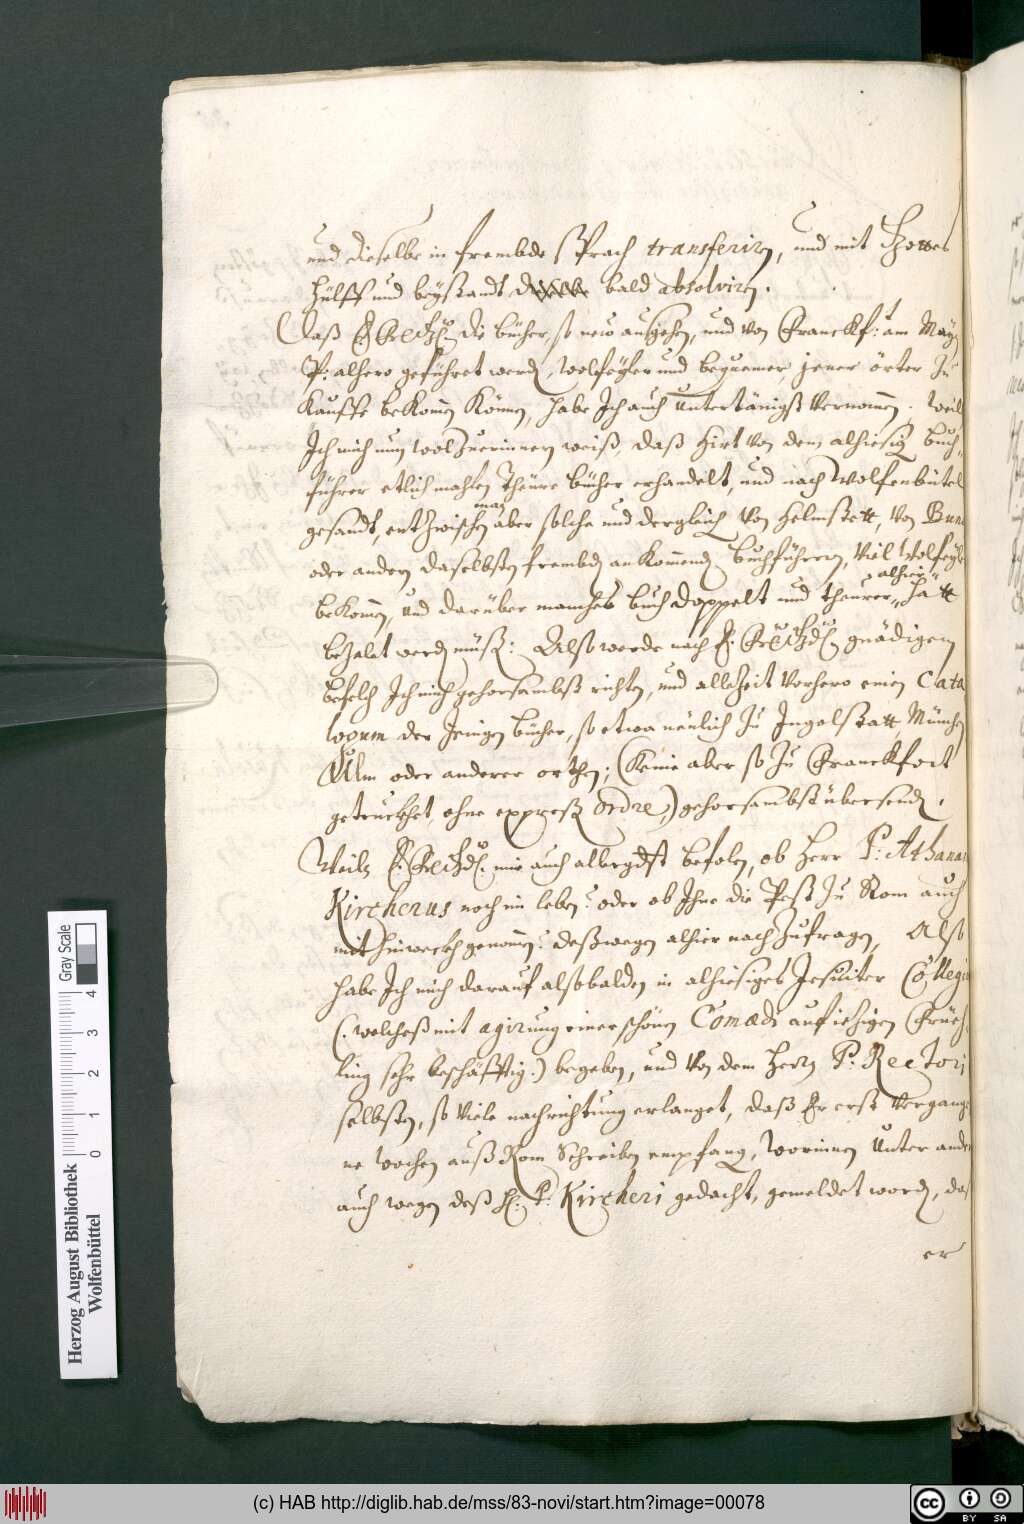 und dieselbe in frembde Sprach transferirn, und mit Gottes
hülff und beystandt bald absolvirn.
Daß E. die bücher, so new ausgehen, und von Franckf: am Mayn
P: alhero geführet werden, wolfeyler und bequemer, jener örter zu
Kauffe bekomen können, habe Ich auch untertänigst vernommen. Weil
Ich mich nun wol zuerinnern weiß, daß Hirt von dem alhiesigen buch
führer etlich mahlen theure bücher erhandelt, und nach Wolfenbütel
gesandt, entzwischen man aber solche und dergleichen von Helmstett, von
oder andern daselbsten frembden ankommenden buchführern, viel wolfeyler
bekomen, und darüber manches buch doppelt und theurer alhier hatt
bezalet werden müssen: Also werde nach E. gnädigem
befelch Ich mich gehorsambst richten, und allezeit vorhero einen Cata
logum der Jenigen bücher, so etwa neulich zu Ingolstatt, München
Ulm oder anderer orthen; (keine aber so zu Franckfort
getruckhet, ohne expreß Ordre,) gehorsambst übersenden.
Weiln E. mir auch allergdst befolen, ob Herr P: Athanas
Kircherus noch im leben? oder ob Ihne die Pest zu Rom auch
mit hinweckh genommen? deßwegen alhier nach zufragen, Also
habe Ich mich darauf alsobalden in alhiesiges Jesuiter Collegium
(: welcheß mit agirung einer schönen Comædi auf iezigen Früeh-
ling sehr beschäfftig:) begeben, und von dem Herrn P: Rectori
selbsten, so viele nachrichtung erlanget, daß Er erst vergange
ne wochen auß Rom Schreiben empfang, worinnen unter andern
auch wegen deß H: P: Kircheri gedacht, gemeldet worden, daß
er
Gray Scale
0 1 2 3 4
Herzog August Bibliothek
Wolfenbüttel
(c) HAB http://diglib.hab.de/mss/83-novi/start.htm?image=00078
cc BY SA